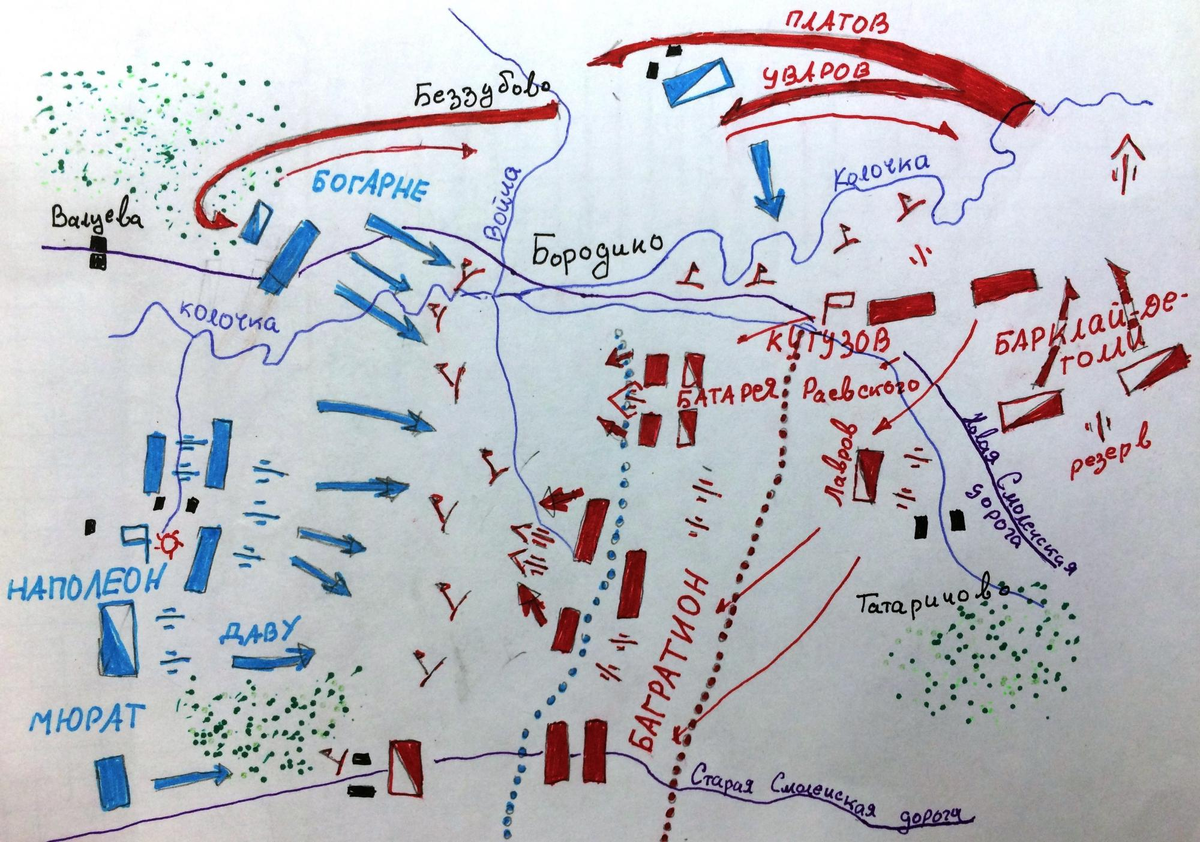 ПЛАТОВ
УВАРОВ
Беззубово
БОГАРНЕ
Войла
Колочка
Валуева
Бородино
КОЛОЧКА
КУТУЗОВ
БАРКЛАЙ-ДЕ-
ТОЛЛИ
БАТАРЕЯ Раевского
Лавров
резерв
Новая Смоленская
дорога
НАПОЛЕОН
ДАВУ
Татариново
БАГРАТИОН
МЮРАТ
Старая Смоленская дорога